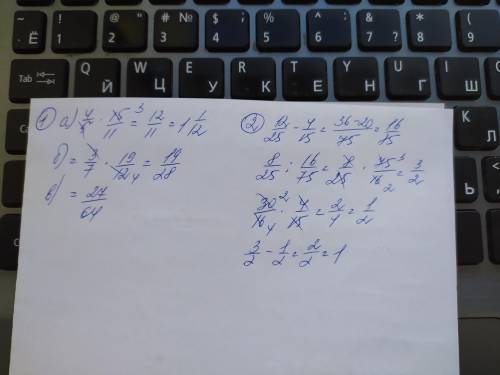 Ё ! 1 @ " 2 # № 3 $ ; 4 % 5 ^ : 6 & ? 7 * 8 ( 9
Tab Q Й W Ц E У R К T Е Y Н U Г I Ш
1) а) 4/5 · 15/11 = 12/11 = 1 1/12
б) = 3/7 · 19/12 = 19/28
в) = 27/64
2) 12/25 - 4/15 = 36-20/75 = 16/75
8/25 : 16/75 = 8/25 · 75/16 = 3/2
30/16 · 4/15 = 2/4 = 1/2
3/2 - 1/2 = 2/2 = 1